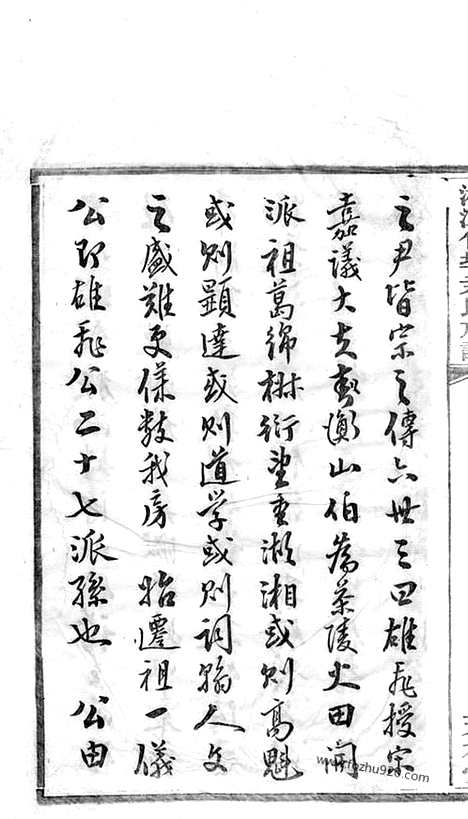 之尹皆宗之傳六世三四雄飛授宋
嘉議大夫封衡山伯為茶陵火田開
派祖葛綿樹衍望重瀕湘或則高魁
或則顯達或則道学或則詞翰人文
之盛難更僕數我房 始遷祖一儀
公即雄飛公二十七派孫也 公由
www.fozhu920.com